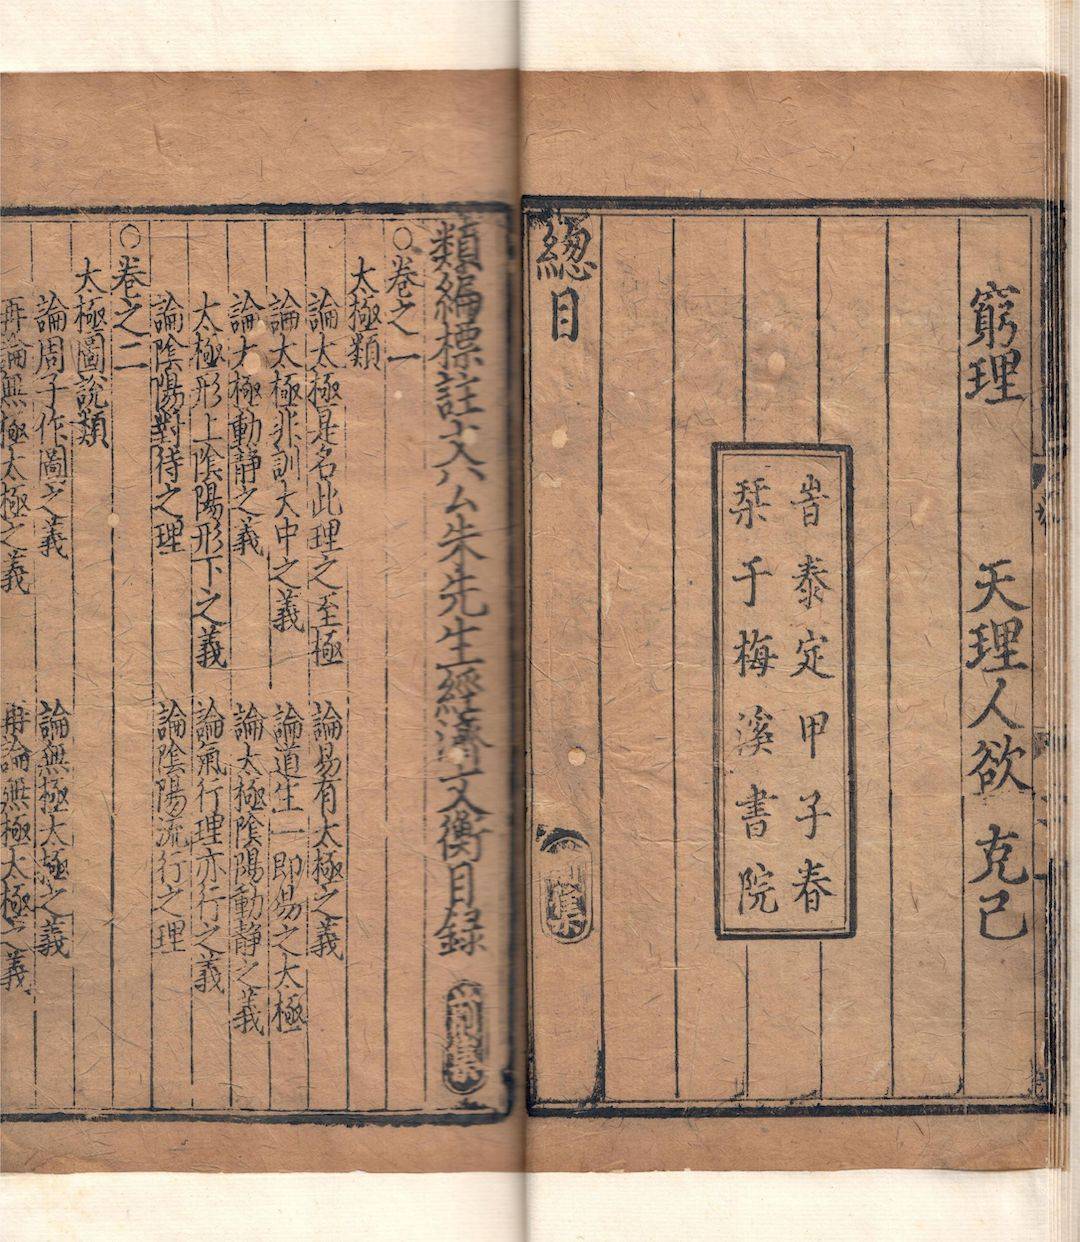 窮理　天理人欲　克己
旹泰定甲子春
栞于梅溪書院
緫目　前集
類編標註文公朱先生經濟文衡目録　前集
○卷之一
太極類
論太極是名此理之至極　論易有太極之義
論太極非訓大中之義　論道生一即易之太極
論太極動静之義　論太極陰陽動静之義
太極形上陰陽形下之義　論氣行理亦行之義
論陰陽對待之理　論陰陽流行之理
○卷之二
太極圖説類
論周子作圖之義　論無極太極之義
再論無極太極之義　再論無極太極之義